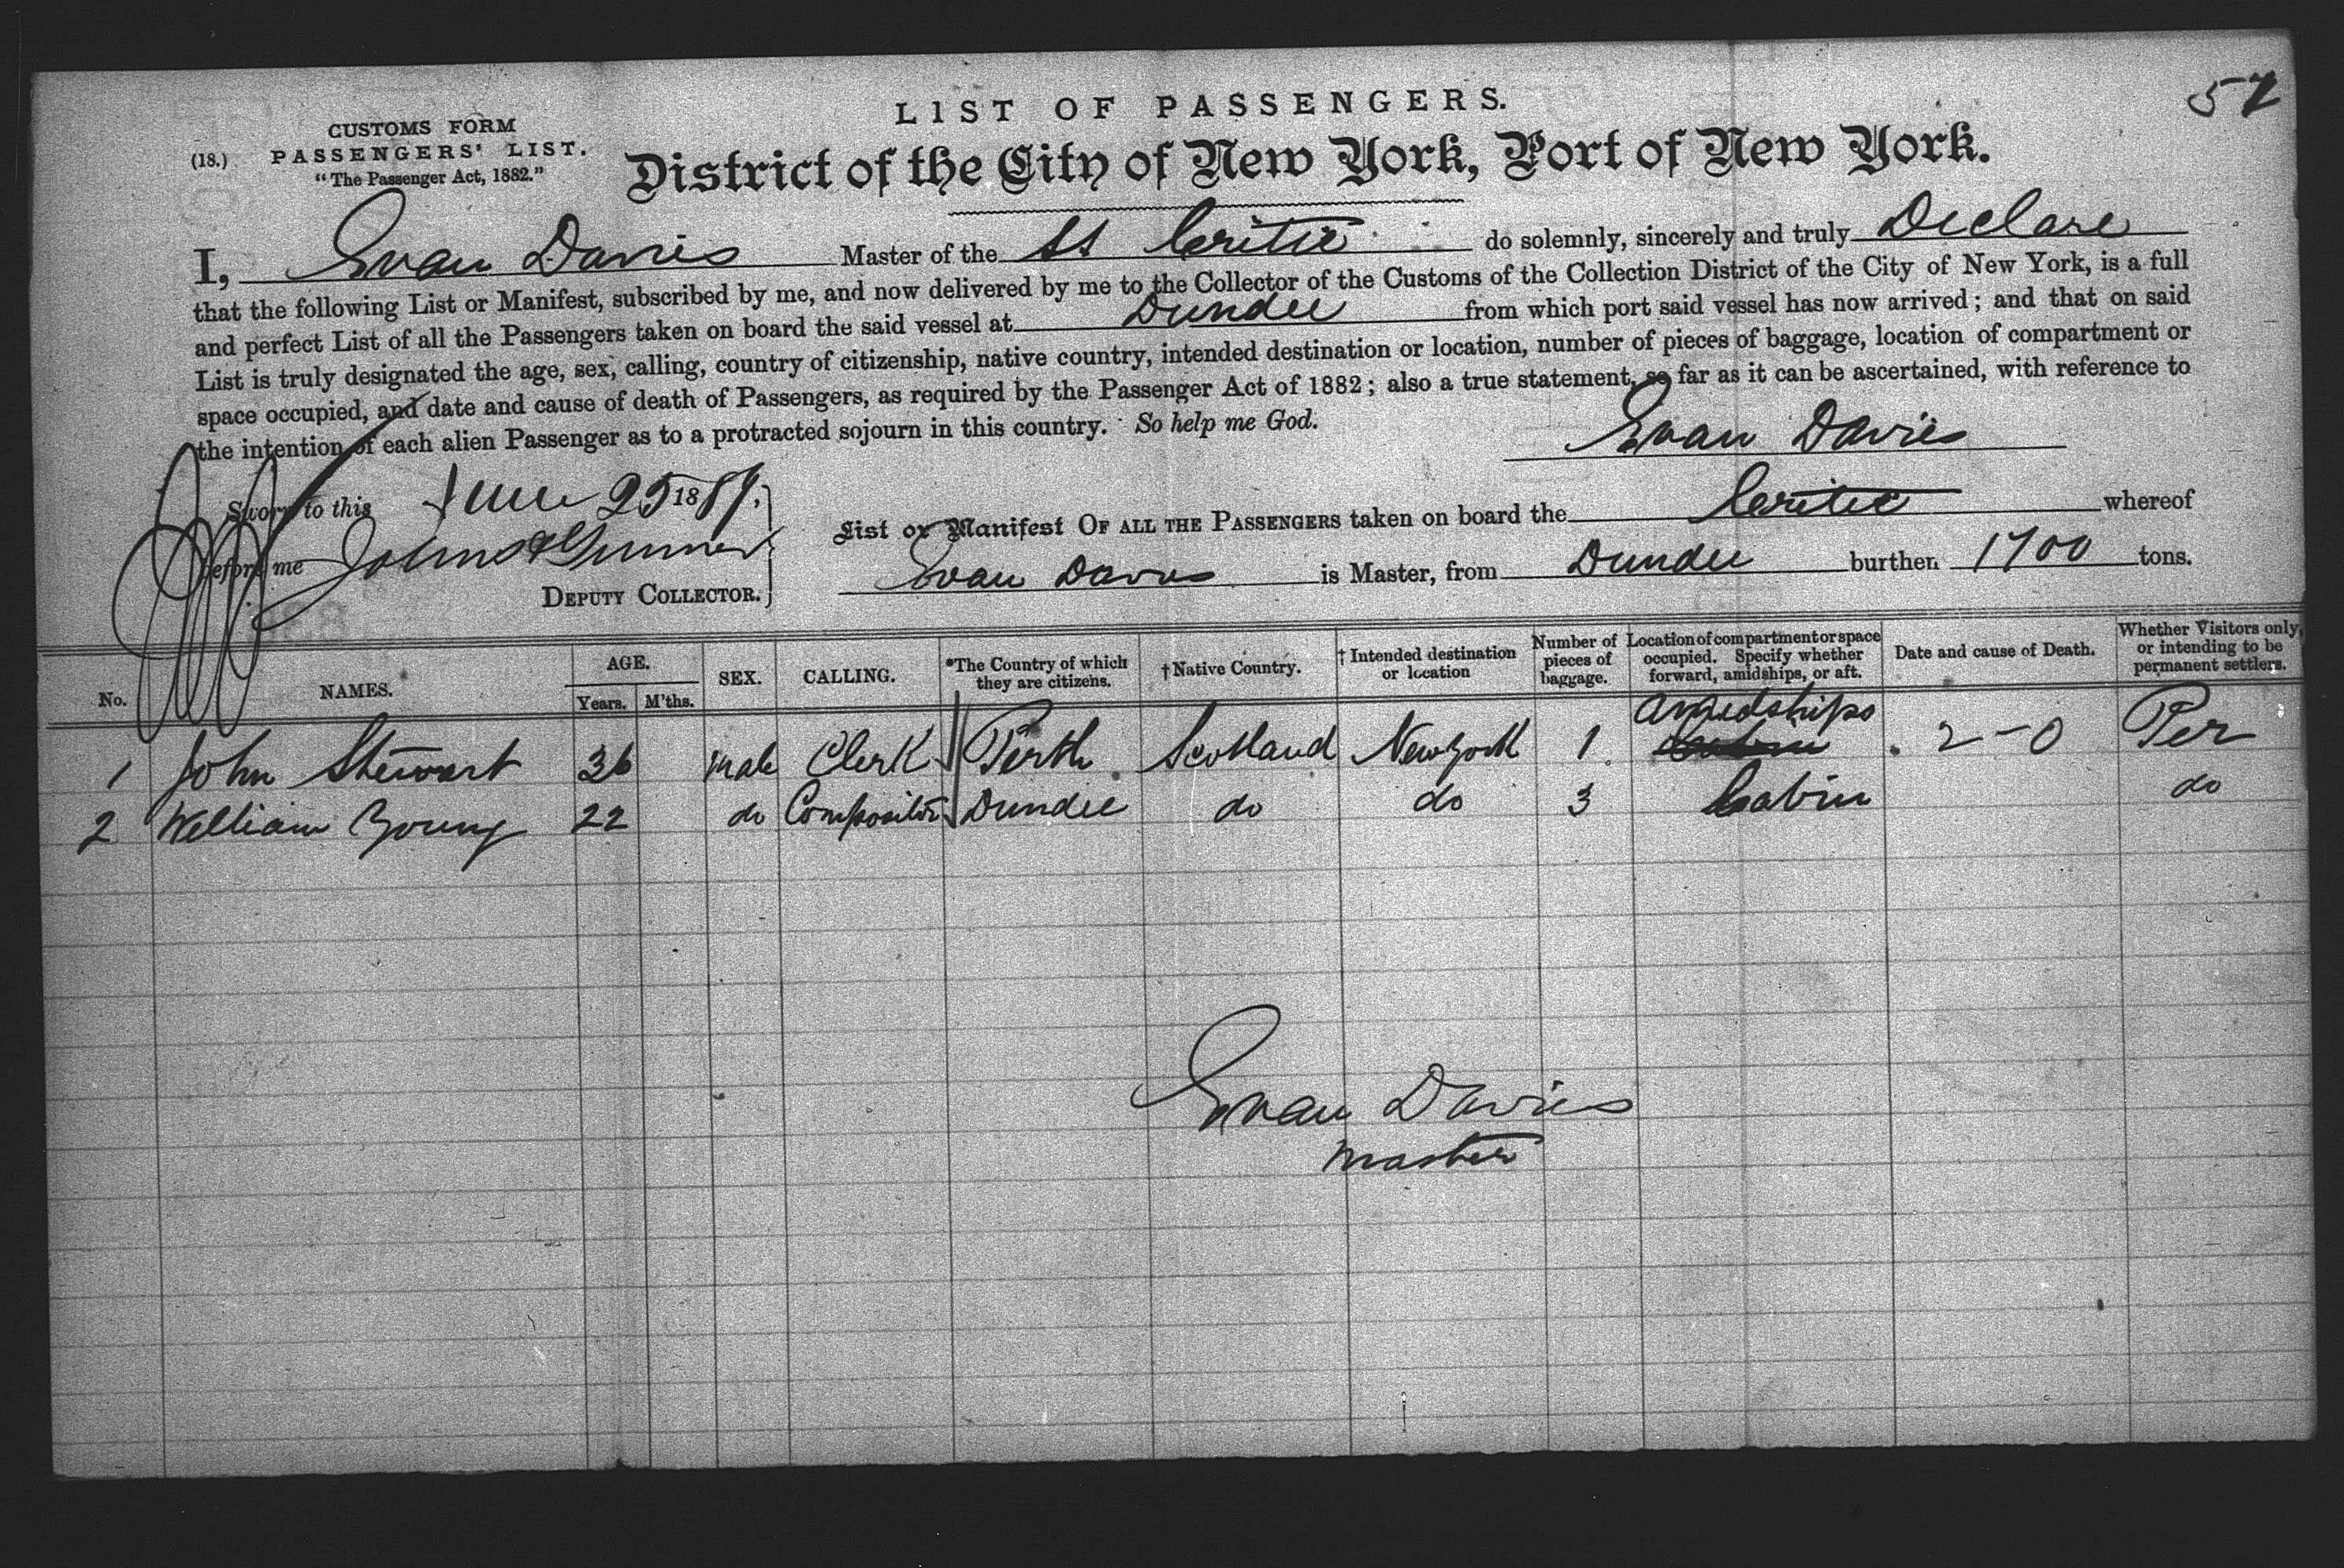 57
LIST OF PASSENGERS.
CUSTOMS FORM
(18.) PASSENGERS' LIST.
"The Passenger Act, 1882."
District of the City of New York, Port of New York.
I, Evan Davies Master of the SS Critic do solemnly, sincerely and truly Declare
that the following List or Manifest, subscribed by me, and now delivered by me to the Collector of the Customs of the Collection District of the City of New York, is a full
and perfect List of all the Passengers taken on board the said vessel at Dundee from which port said vessel has now arrived; and that on said
List is truly designated the age, sex, calling, country of citizenship, native country, intended destination or location, number of pieces of baggage, location of compartment or
space occupied, and date and cause of death of Passengers, as required by the Passenger Act of 1882; also a true statement, so far as it can be ascertained, with reference to
the intention of each alien Passenger as to a protracted sojourn in this country. So help me God.
Evan Davies
Sworn to this June 25 1889.
Before me
DEPUTY COLLECTOR.
List or Manifest OF ALL THE PASSENGERS taken on board the Critic whereof
Evan Davies is Master, from Dundee burthen 1700 tons.
No. NAMES. AGE. Years. M'ths. SEX. CALLING. *The Country of which they are citizens. †Native Country. †Intended destination or location Number of pieces of baggage. Location of compartment or space occupied. Specify whether forward, amidships, or aft. Date and cause of Death. Whether Visitors only, or intending to be permanent settlers.
1 John Stewart 36 male Clerk Perth Scotland New York 1 Amidships 2-0 Per
2 William Young 22 do Compositor Dundee do do 3 Cabin do
Evan Davies
Master